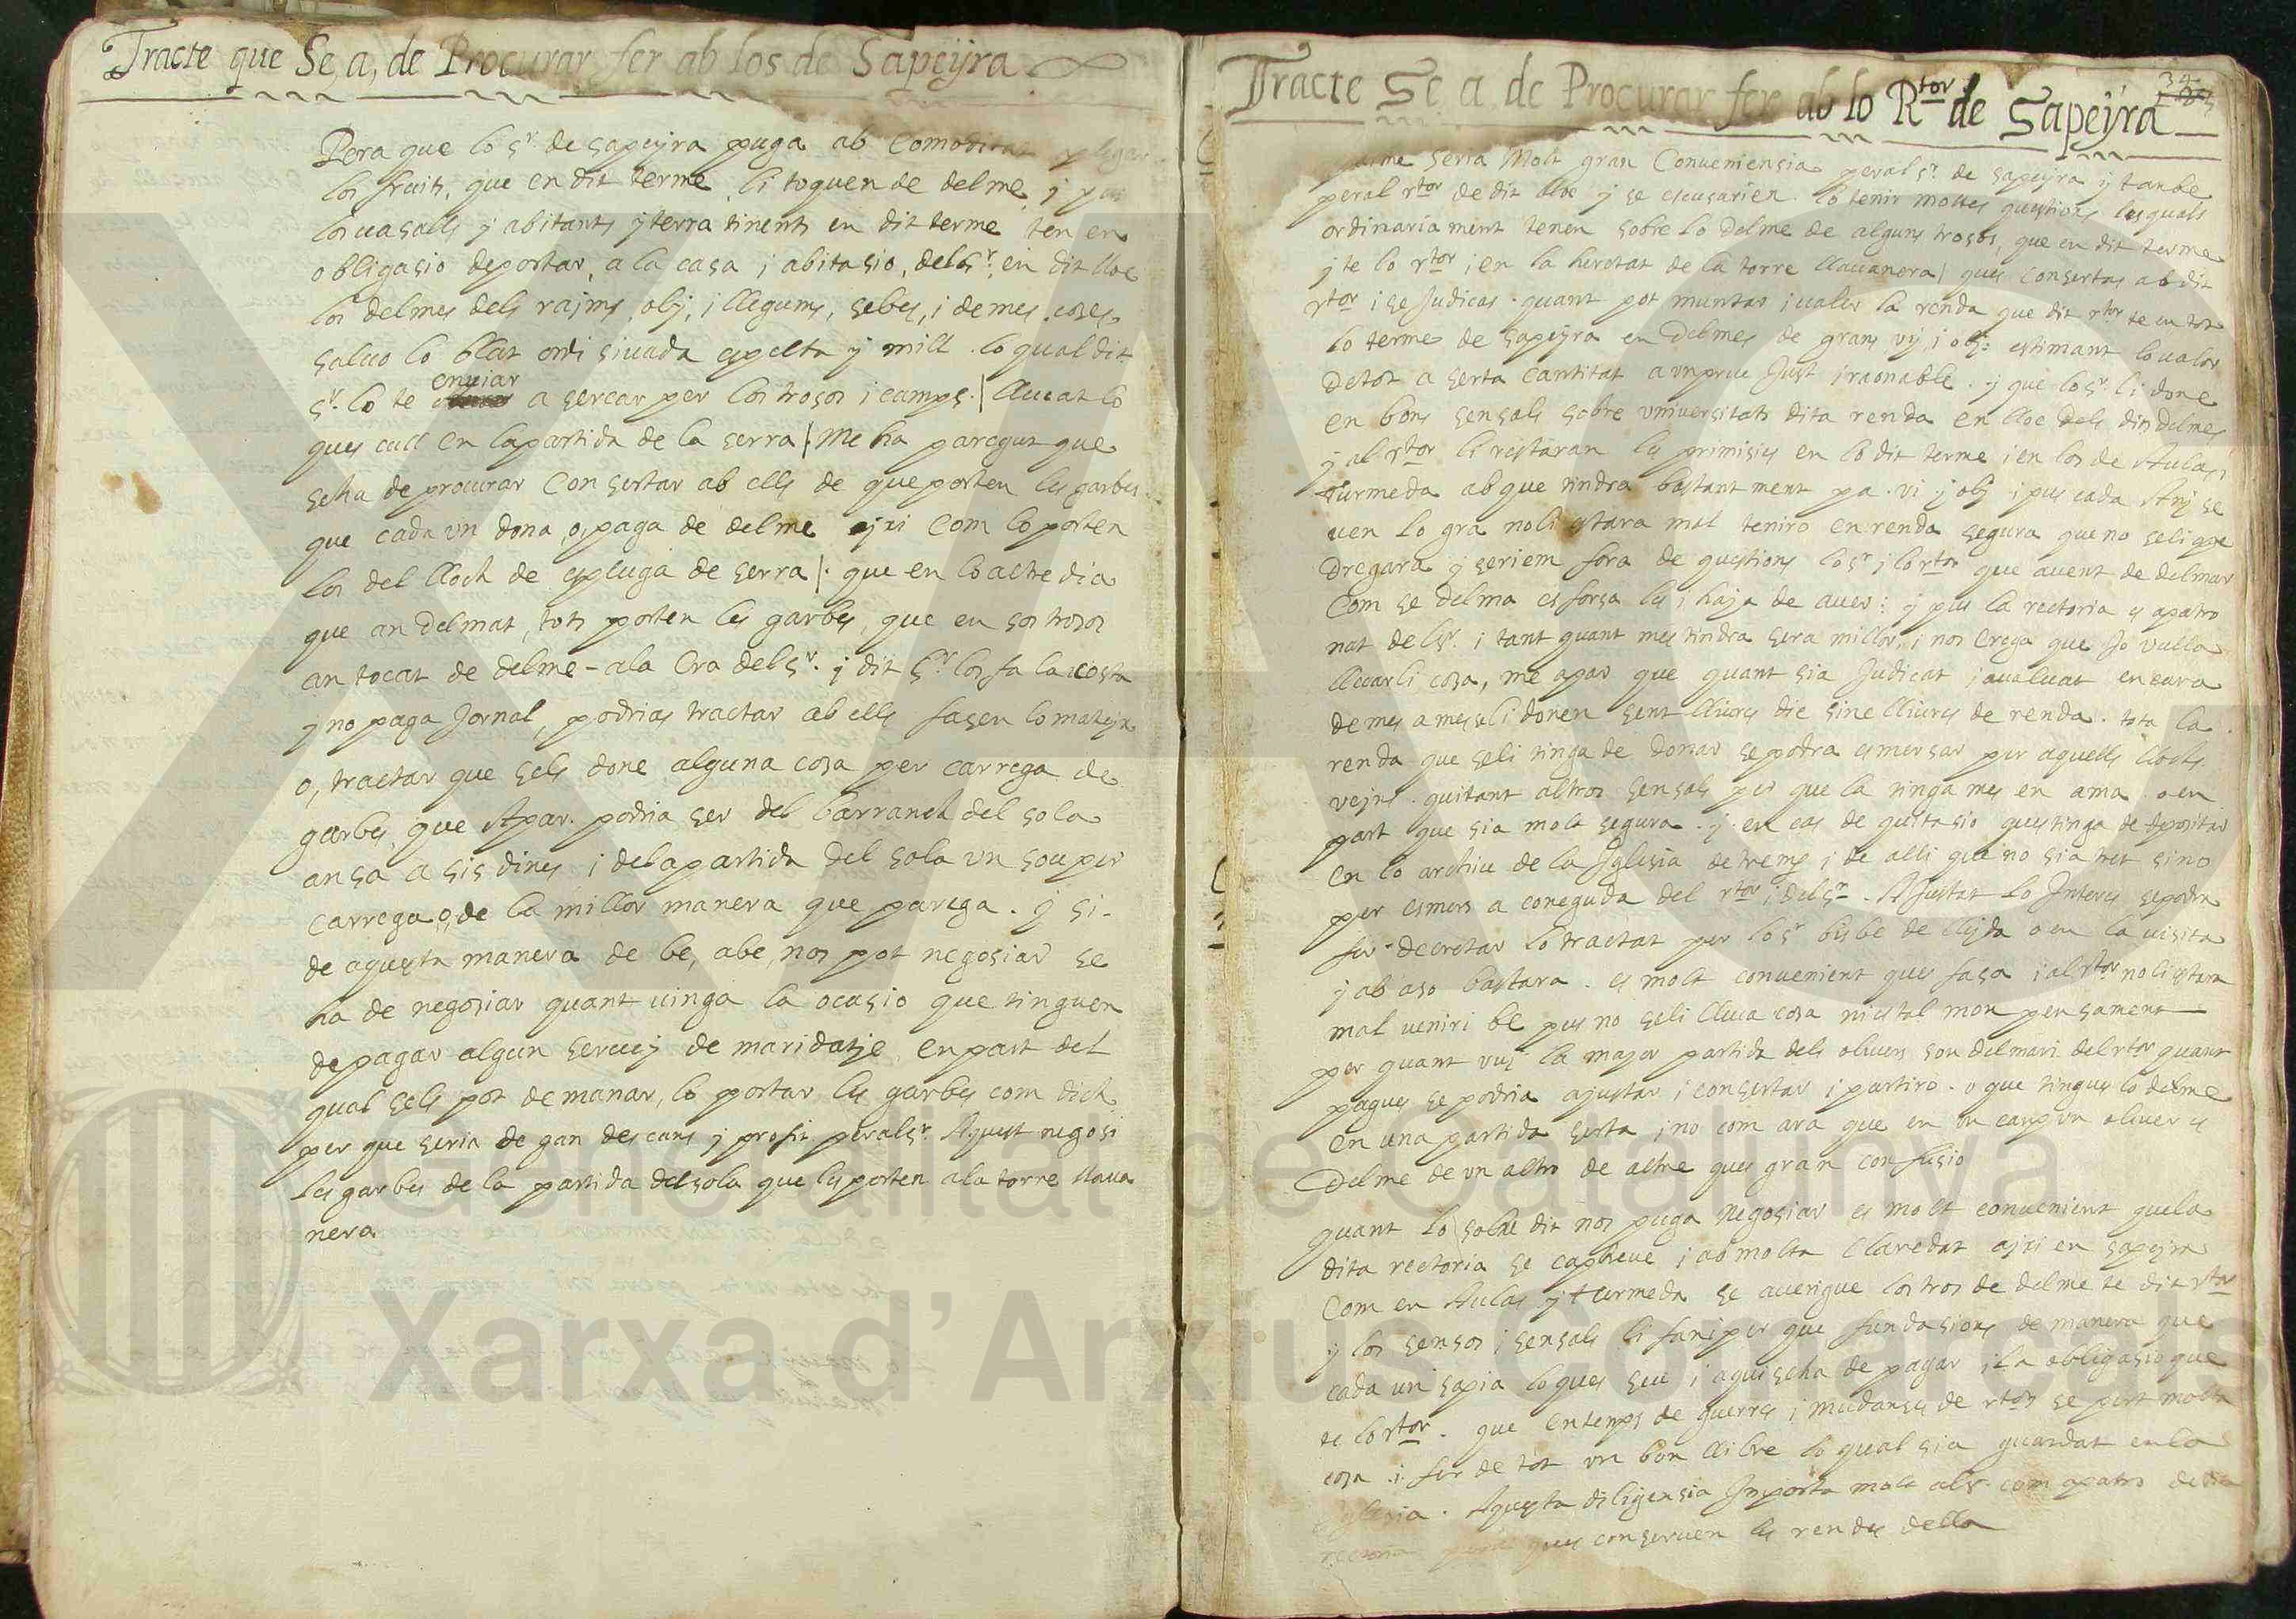 Tracte que Se, a, de Procurar fer ab los de Sapeyra
Pera que lo Sr. de sapeyra puga ab Comoditat plegar
los fruits, que en dit terme li toquen de delme, y
los uasalls y abitants y terra tinents en dit terme ten en
obligasio de portar, a la casa i abitasio, del Sr. en dit lloc
los delmes dels rajms, olj, i llegums, sebes, i demes coses
saluo lo blat ordi siuada espelta y mill. lo qual dit
enuiar
Sr. lo te a sercar per los trosos i camps. / lleuat lo
ques cull en la partida de la serra / me ha paregut que
seha de procurar Consertar ab ells de que porten les garbes
que cada un dona, o, paga de delme ajxi Com lo porten
los del lloch de espluga de serra /. que en lo altre dia
que an delmat, tots porten les garbes, que en sos trosos
an tocat de delme - ala Era del Sr. y dit Sr. los fa la costa
y no paga Jornal, podrias tractar ab ells fasen lo mateyx
o, tractar que sels done alguna cosa per carrega de
garbes, que Apar. podria ser del barranch del sola
ansa a sis dines i dela partida del sola un sou per
carrega, o, de la millor manera que parega. y si
de aquesta manera de be, abe, nos pot negosiar se
ha de negosiar quant uinga la ocasio que tinguen
de pagar algun seruey de maridatje, en part del
qual sels pot demanar, lo portar les garbes com dich
per que seria de gan descans y profit peral Sr. Aquest negosi
les garbes de la partida del sola que les porten ala torre llaua
nera
34
Tracte Se a de Procurar fer ab lo Rtor de Sapeyra
seria Molt gran Conueniensia peral Sr. de sapeyra y tanbe
peral rtor de dit lloc y se escusarien lo tenir moltes questions les quals
ordinaria ment tenen sobre lo delme de alguns trosos, que en dit terme
y te lo rtor i en la heretat de la torre llauanera / ques consertas ab dit
rtor i se Judicas quant pot muntar i ualer la renda que dit rtor te en tot
lo terme de sapeyra en Delmes de grans vi, i olj: estimant lo ualor
de tot a serta cantitat a un preu Just i raonable. y que lo Sr. li done
en bons sensals sobre vniuersitats dita renda en lloc dels dits delmes
y al rtor li restaran les primisies en lo dit terme i en los de Aulas i
Turmeda ab que tindra bastant ment pa. vi y olj i pus cada Anj se
uen lo gra noli estara mal teniro en renda segura que no seli ape
dregara y seriem fora de questions lo Sr. i lo rtor que auent de delmar
Com se delma es forsa les i haja de auer: y pus la rectoria es apatro
nat del Sr. i tant quant mes tindra sera millor, i nos Crega que Jo vulla
lleuarli cosa, me apar que quant sia Judicat i aualuat encara
de mes a mes seli donen sent lliures dic sinc lliures de renda. tota la
renda que seli tinga de donar se podra esmersar per aquells llochs
vejns. quitant altros sensals per que la tinga mes en ama. o en
part que sia molt segura. y en cas de quitasio ques tinga de depositar
en lo archiu de la Iglesia de tremp i de alli que no sia tret sino
per esmers a coneguda del rtor i del Sr. Ajustat lo Interes se podra
fer decretar lo tractat per lo Sr. bisbe de lleyda o en la uisita
y ab aso bastara. es molt conuenient ques fasa i al rtor noli estara
mal ueniri be pus no seli lleua cosa ni es tal mon pensament
per quant vuy la major partida dels oliuers son delmari del rtor quant
pugues se podria ajustar i consertar i partiro. o que tingues lo delme
en una partida serta i no com ara que en un camp un oliuer es
Delme de un altro de altre ques gran confusio
quant lo sobre dit nos puga negosiar es molt conuenient que la
dita rectoria se capbreue i ab molta Claredat ajxi en sapeyra
Com en Aulas y turmeda se auerigue los tros de delme te dit rtor
y los sensos i sensals li fan i per que fundasions de manera que
cada un sapia lo ques seu i aqui seha de pagar i la obligasio que
te lo rtor. que en temps de guerres i mudanses de rtors se pert molta
cosa. i fer de tot un bon llibre lo qual sia guardat en la
Iglesia. Aquesta diligensia Inporta molt al Sr. com apatro de dita
rectoria pera ques conseruen les rendes della
Generalitat de Catalunya
Xarxa d'Arxius Comarcals
XAC